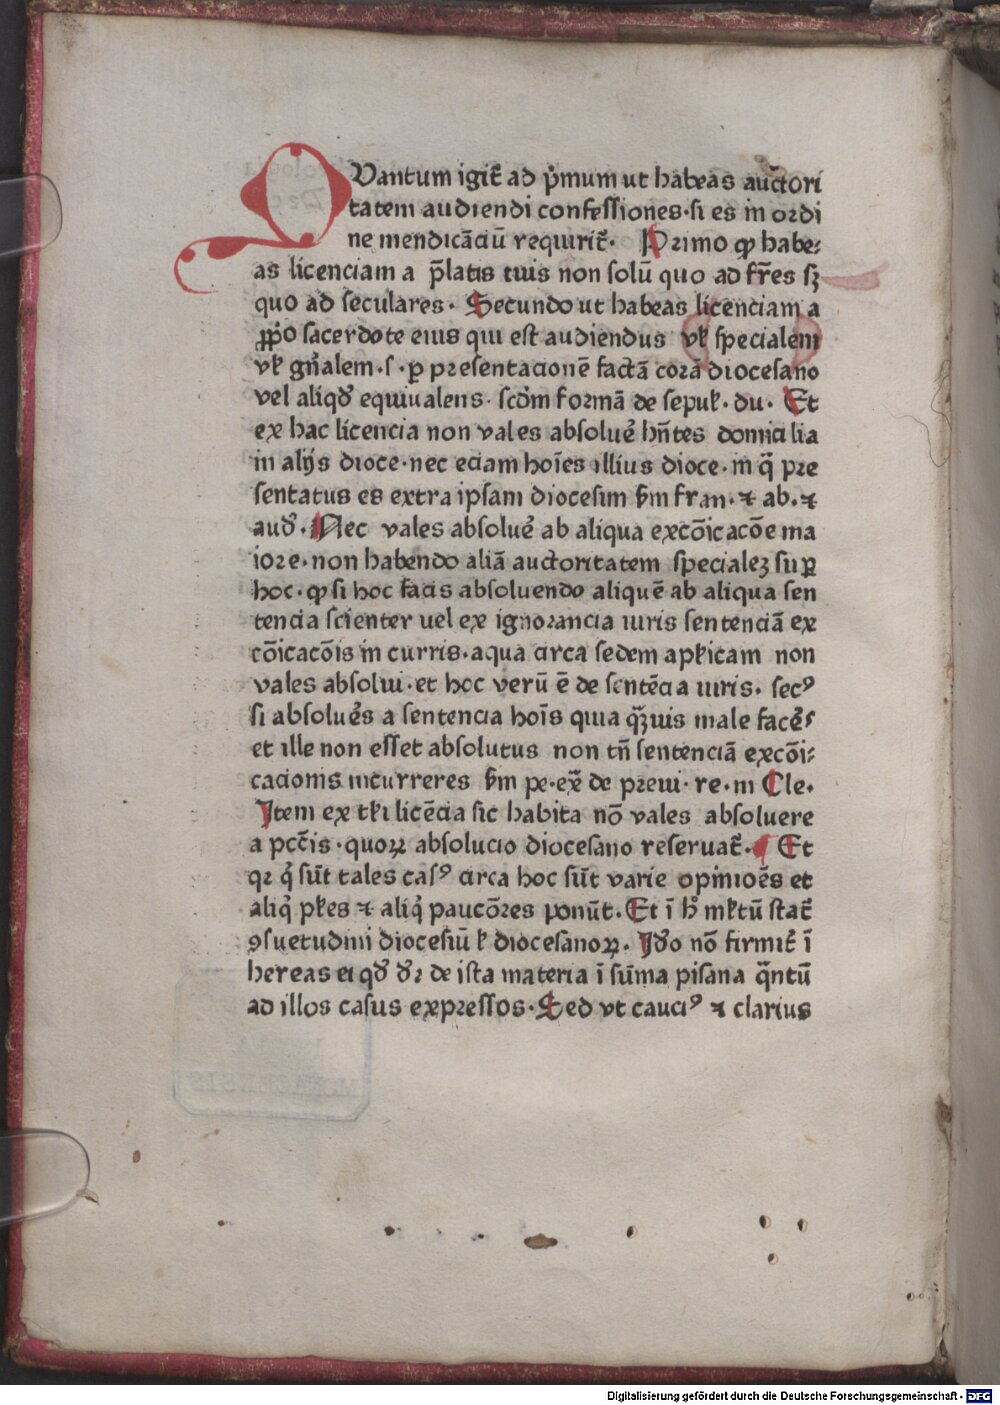 QVantum igit̃ ad p̓mum ut habeas auctori
tatem audiendi confessiones·si es in ordi
ne mendicãciũ requirit̃· Primo ꝙ habe⸗
as licenciam a p̃latis tuis non solũ quo ad fr̃es sꝫ
quo ad seculares· Secundo ut habeas licenciam a
ꝓp̓o sacerdote eius qui est audiendus vꝉ specialem
vꝉ gñalem·s·ꝑ presentacionẽ factã corã diocesano
vel aliqđ equiualens·scđm formã de sepuꝉ·du· Et
ex hac licencia non vales absolue᷑ hñtes domicilia
in alijs dioce·nec eciam hoĩes illius dioce·in q̃ pre
sentatus es extra ipsam diocesim ẜm fran·⁊ ab·⁊
auđ·Nec vales absolue᷑ ab aliqua excõicacõe ma
iore·non habendo aliã auctoritatem specialeꝫ suꝑ
hoc·ꝙ si hoc facis absoluendo aliquẽ ab aliqua sen
tencia scienter uel ex ignorancia iuris sentenciã ex
cõicacõis in curris·aqua circa sedem apꝉicam non
vales absolui·et hoc verũ ẽ de sentẽcia iuris· secꝰ
si absolue᷑s a sentencia hoĩs quia q̃ꝫuis male face᷑s
et ille non esset absolutus non tñ sentenciã excõi⸗
cacionis incurreres ẜm pe·ex̃ de preui·re·in Cle·
Item ex tꝉi licẽcia sic habita nõ vales absoluere
a pcc̃is·quoꝝ absolucio diocesano reseruat̃· Et
qꝛ q̓ sũt tales casꝰ circa hoc sũt varie opiniões et
aliq̓ pꝉes ⁊ aliq̓ pauciões ponũt·Et ĩ h̓ mꝉtũ stat̃
ꝯsuetudini diocesiũ ꝉ diocesanoꝝ· Iđo nõ firmit᷑ ĩ
hereas ei qđ đꝛ de ista materia ĩ sũma pisana q̃ntũ
ad illos casus expressos·Sed vt cauciꝰ ⁊ clarius
Digitalisierung gefördert durch die Deutsche Forschungsgemeinschaft - DFG